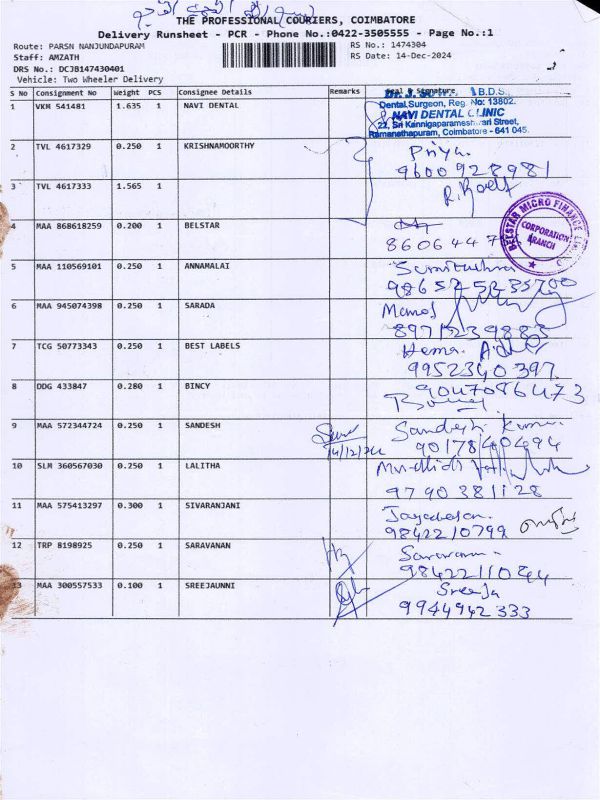 THE PROFESSIONAL COURIERS, COIMBATORE
Delivery Runsheet - PCR - Phone No.:0422-3505555 - Page No.:1
Route: PARSN NANJUNDAPURAM RS No.: 1474304
Staff: AMZATH RS Date: 14-Dec-2024
DRS No.: DCJB147430401
Vehicle: Two Wheeler Delivery
S No Consignment No Weight PCS Consignee Details Remarks Seal & Signature
Dr. J. B.D.S.,
1 VKM 541481 1.635 1 NAVI DENTAL Dental Surgeon, Reg. No: 13802.
NAVI DENTAL CLINIC
22, Sri Kannigaparameshwari Street,
Ramanathapuram, Coimbatore - 641 045.
2 TVL 4617329 0.250 1 KRISHNAMOORTHY Priya.
9600928981
3 TVL 4617333 1.565 1
4 MAA 868618259 0.200 1 BELSTAR
8606447
BELSTAR MICRO FINANCE
CORPORATION
BRANCH
5 MAA 110569101 0.250 1 ANNAMALAI
6 MAA 945074398 0.250 1 SARADA
7 TCG 50773343 0.250 1 BEST LABELS Hema.
9952340397
8 DDG 433847 0.280 1 BINCY 9047086473
9 MAA 572344724 0.250 1 SANDESH Sandesh Kumar
14/12/24 9017840494
10 SLM 360567030 0.250 1 LALITHA
9790381128
11 MAA 575413297 0.300 1 SIVARANJANI
9842210799
12 TRP 8198925 0.250 1 SARAVANAN Saravanan
9842211044
13 MAA 300557533 0.100 1 SREEJAUNNI Sreeja
9944942333